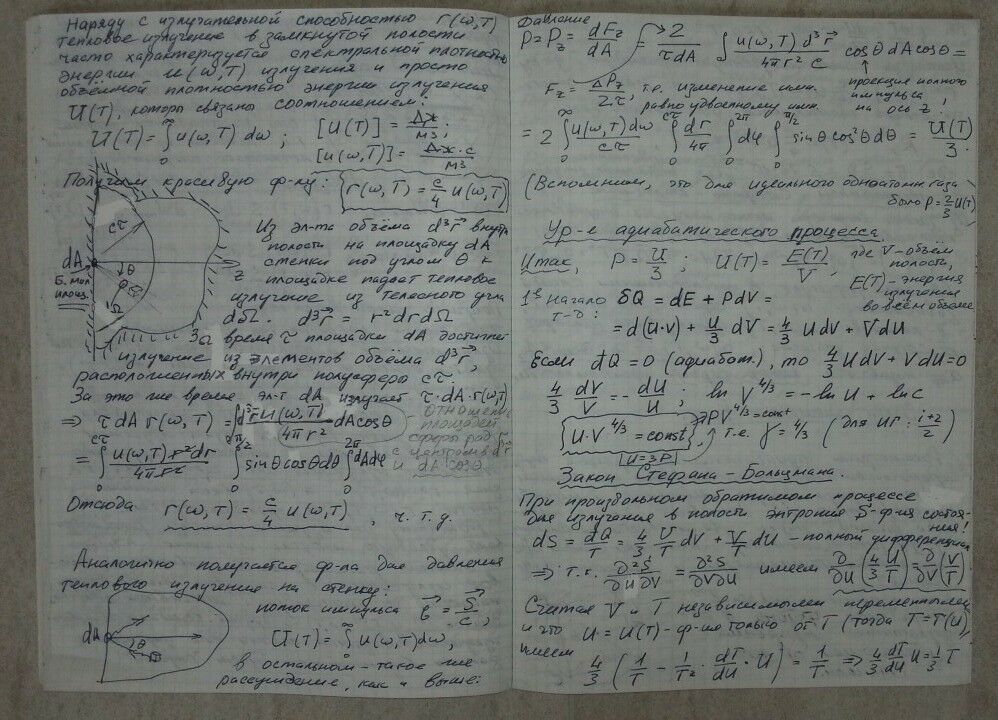 Наряду с излучательной способностью r(ω,T)
тепловое излучение в замкнутой полости
часто характеризуется спектральной плотностью
энергии u(ω,T) излучения и просто
объёмной плотностью энергии излучения
U(T), которы связаны соотношением:
U(T) = ∫₀^∞ u(ω,T) dω ; [U(T)] = Дж/м³ ;
[u(ω,T)] = Дж·с/м³
Получим красивую ф-лу: r(ω,T) = c/4 u(ω,T)
cτ
dA
Б. мал.
площ.
θ
z
Из эл-та объёма d³r⃗ внутри
полости на площадку dA
стенки под углом θ к
площадке падает тепловое
излучение из телесного угла
dΩ. d³r⃗ = r²drdΩ
За время τ площадки dA достигнет
излучение из элементов объёма d³r⃗,
расположенных внутри полусферы cτ.
За это же время эл-т dA излучает τ·dA·r(ω,T)
⇒ τ dA r(ω,T) = ∫ d³r⃗ u(ω,T)/4πr² dA cosθ
- отношение
площадей
сферы рад. r
с центром в dr⃗
и dA cosθ.
= ∫₀^cτ u(ω,T) r²dr/4πr² ∫₀^π/2 sinθcosθdθ ∫₀^2π dAdφ
Отсюда r(ω,T) = c/4 u(ω,T) , ч.т.д.
Аналогично получается ф-ла для давления
теплового излучения на стенку:
dA
θ
поток импульса = S⃗/c ,
U(T) = ∫₀^∞ u(ω,T)dω,
в остальном – такое же
рассуждение, как и выше:
Давление
P = P_z = dF_z/dA = 2/τdA ∫ u(ω,T) d³r⃗/4πr² c cosθ dA cosθ =
F_z = ΔP_z/2τ, т.е. изменение имп.
равно удвоенному имп.
проекция полного
импульса
на ось z!
= 2 ∫₀^∞ u(ω,T)dω/cτ ∫₀^cτ dr/4π ∫₀^2π dφ ∫₀^π/2 sinθcos²θdθ = U(T)/3.
(Вспомним, это для идеального одноатомн газа
было P = 2/3 U(T)
Ур-е адиабатического процесса.
Итак, P = U/3 ; U(T) = E(T)/V , где V – объём
полости,
E(T) – энергия
излучения
во всём объёме
1е начало δQ = dE + PdV =
т-д:
= d(U·V) + U/3 dV = 4/3 UdV + VdU
Если đQ = 0 (адиабат.), то 4/3 UdV + VdU = 0
4/3 dV/V = - dU/U ; ln V^4/3 = -ln U + ln C
U·V^4/3 = const PV^4/3 = const
т.е. γ = 4/3 (для иг: i+2/2)
U = 3P
Закон Стефана – Больцмана.
При произвольном обратимом процессе
для излучения в полости энтропия S – ф-ия состоя-
ния!
dS = đQ/T = 4/3 U/T dV + V/T dU – полный дифференциал
⇒ т.к. ∂²S/∂U∂V = ∂²S/∂V∂U имеем ∂/∂U (4/3 U/T) = ∂/∂V (V/T)
Считая V и T независимыми переменными
и что U = U(T) – ф-ия только от T (тогда T = T(U),
имеем
4/3 (1/T - 1/T² · dT/dU · U) = 1/T ⇒ 4/3 dT/dU U = 1/3 T